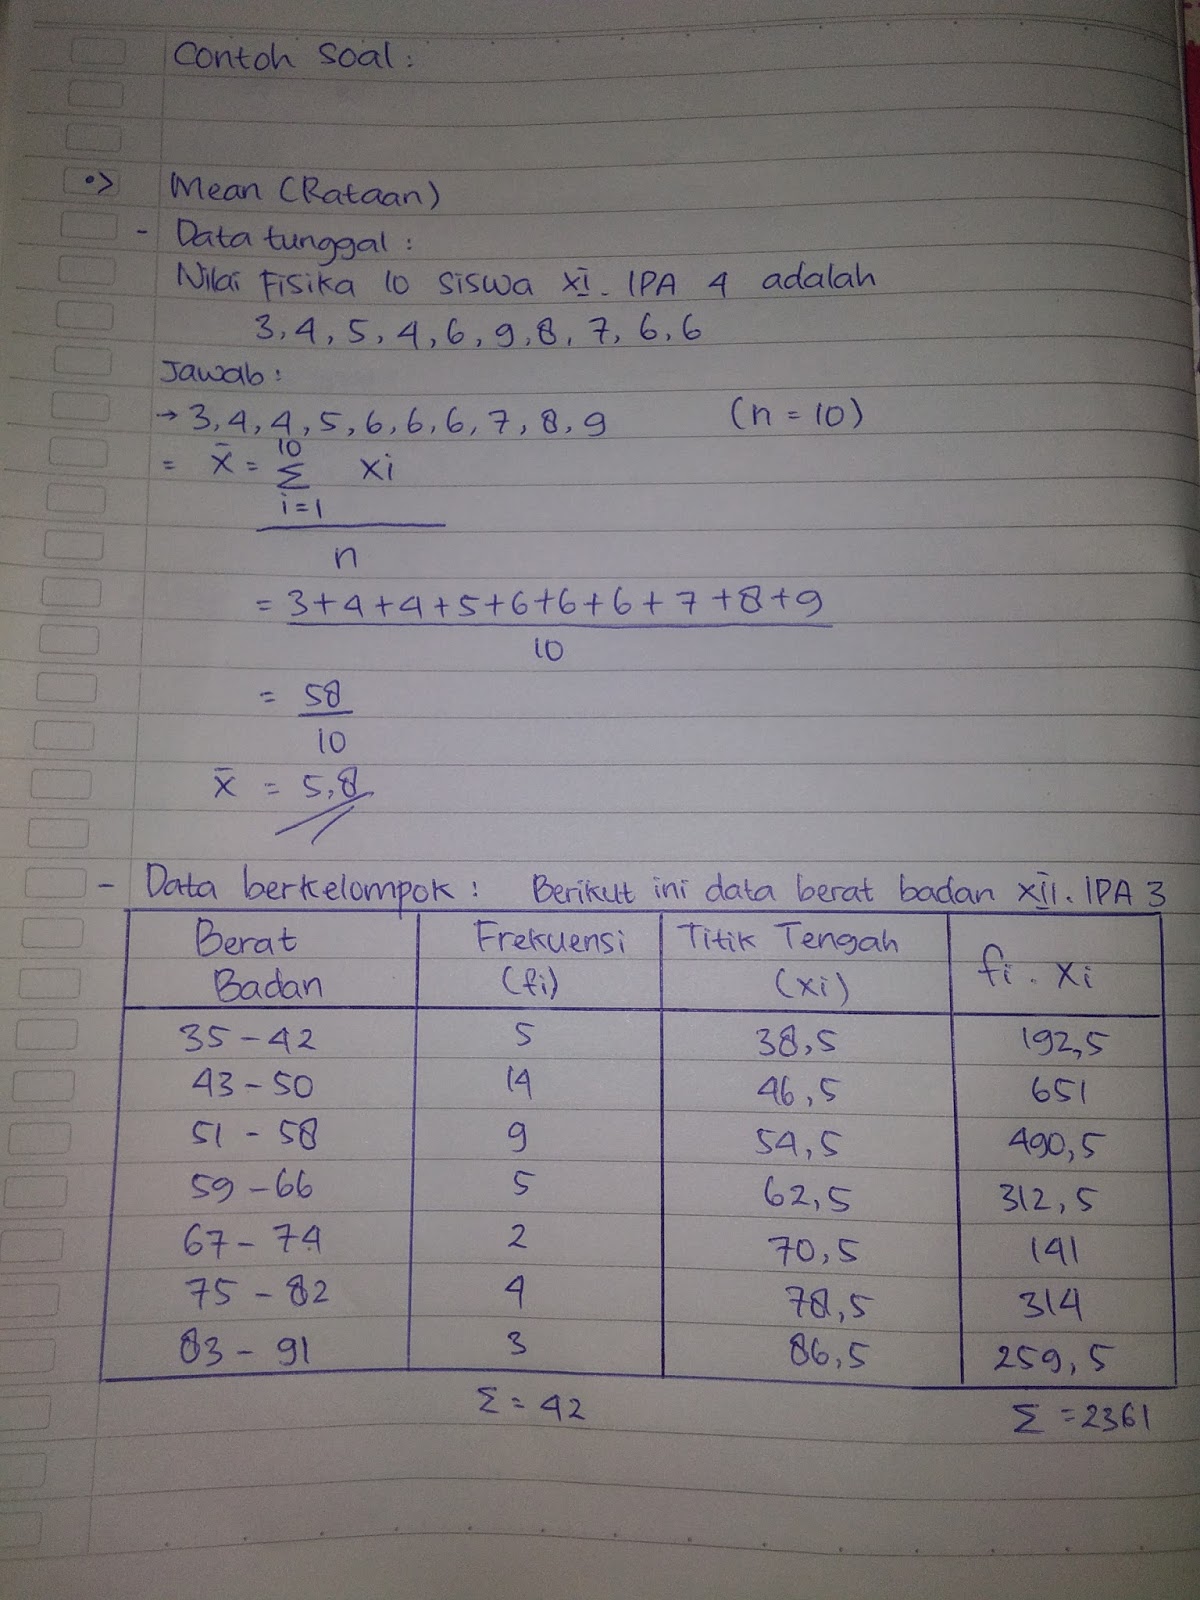 Contoh Soal :
•> Mean (Rataan)
- Data tunggal :
Nilai Fisika 10 siswa XI. IPA 4 adalah
3, 4, 5, 4, 6, 9, 8, 7, 6, 6
Jawab :
→ 3, 4, 4, 5, 6, 6, 6, 7, 8, 9 (n = 10)
10
= x̄ = Σ xi
i=1
n
= 3+4+4+5+6+6+6+7+8+9
10
= 58
10
x̄ = 5,8
- Data berkelompok : Berikut ini data berat badan XII. IPA 3
Berat Frekuensi Titik Tengah fi . xi
Badan (fi) (xi)
35 - 42 5 38,5 192,5
43 - 50 14 46,5 651
51 - 58 9 54,5 490,5
59 - 66 5 62,5 312,5
67 - 74 2 70,5 141
75 - 82 4 78,5 314
83 - 91 3 86,5 259,5
Σ = 42 Σ = 2361